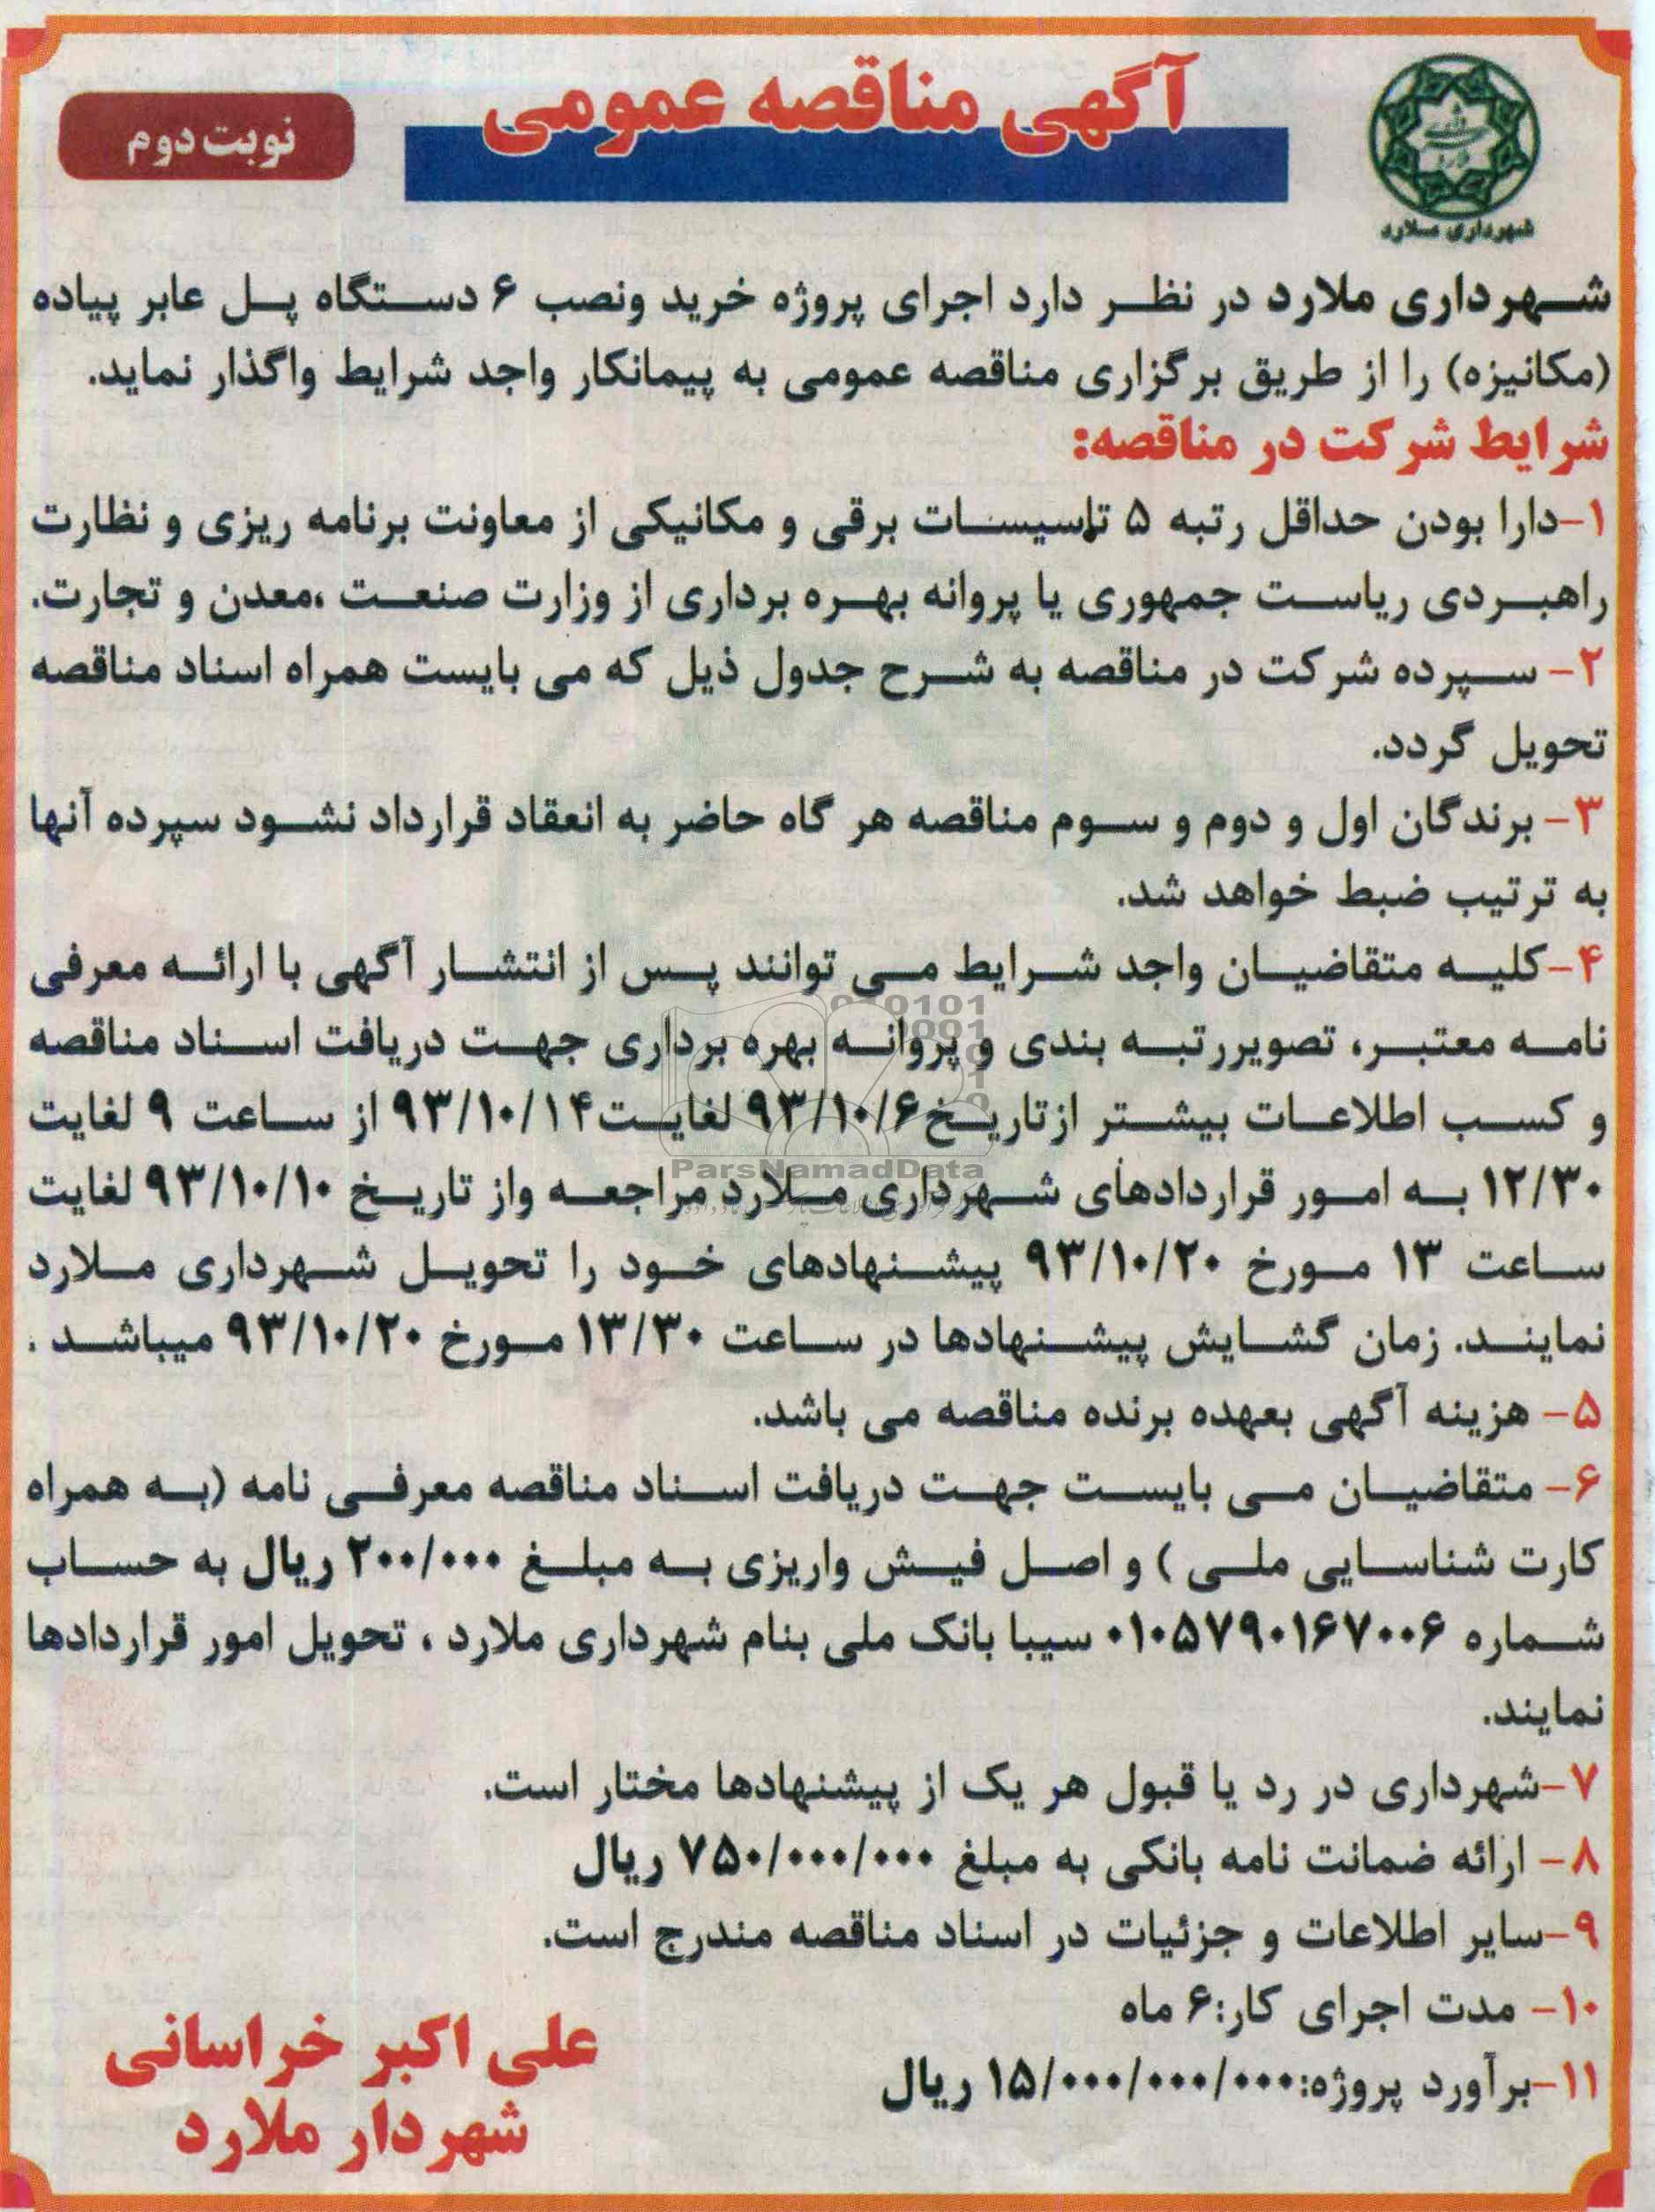 آگهی مناقصه عمومی
نوبت دوم
شهرداری ملارد
شهرداری ملارد در نظر دارد اجرای پروژه خرید ونصب ۶ دستگاه پل عابر پیاده
(مکانیزه) را از طریق برگزاری مناقصه عمومی به پیمانکار واجد شرایط واگذار نماید.
شرایط شرکت در مناقصه:
۱-دارا بودن حداقل رتبه ۵ تاسیسات برقی و مکانیکی از معاونت برنامه ریزی و نظارت
راهبردی ریاست جمهوری یا پروانه بهره برداری از وزارت صنعت ،معدن و تجارت.
۲- سپرده شرکت در مناقصه به شرح جدول ذیل که می بایست همراه اسناد مناقصه
تحویل گردد.
۳- برندگان اول و دوم و سوم مناقصه هر گاه حاضر به انعقاد قرارداد نشود سپرده آنها
به ترتیب ضبط خواهد شد.
۴-کلیه متقاضیان واجد شرایط می توانند پس از انتشار آگهی با ارائه معرفی
نامه معتبر، تصویررتبه بندی و پروانه بهره برداری جهت دریافت اسناد مناقصه
و کسب اطلاعات بیشتر ازتاریخ ۹۳/۱۰/۶ لغایت ۹۳/۱۰/۱۴ از ساعت ۹ لغایت
۱۲/۳۰ به امور قراردادهای شهرداری ملارد مراجعه واز تاریخ ۹۳/۱۰/۱۰ لغایت
ساعت ۱۳ مورخ ۹۳/۱۰/۲۰ پیشنهادهای خود را تحویل شهرداری ملارد
نمایند. زمان گشایش پیشنهادها در ساعت ۱۳/۳۰ مورخ ۹۳/۱۰/۲۰ میباشد .
۵- هزینه آگهی بعهده برنده مناقصه می باشد.
۶- متقاضیان می بایست جهت دریافت اسناد مناقصه معرفی نامه (به همراه
کارت شناسایی ملی ) و اصل فیش واریزی به مبلغ ۲۰۰/۰۰۰ ریال به حساب
شماره ۰۱۰۵۷۹۰۱۶۷۰۰۶ سیبا بانک ملی بنام شهرداری ملارد ، تحویل امور قراردادها
نمایند.
۷-شهرداری در رد یا قبول هر یک از پیشنهادها مختار است.
۸- ارائه ضمانت نامه بانکی به مبلغ ۷۵۰/۰۰۰/۰۰۰ ریال
۹-سایر اطلاعات و جزئیات در اسناد مناقصه مندرج است.
۱۰- مدت اجرای کار:۶ ماه
۱۱-برآورد پروژه:۱۵/۰۰۰/۰۰۰/۰۰۰ ریال
علی اکبر خراسانی
شهردار ملارد
ParsNamadData